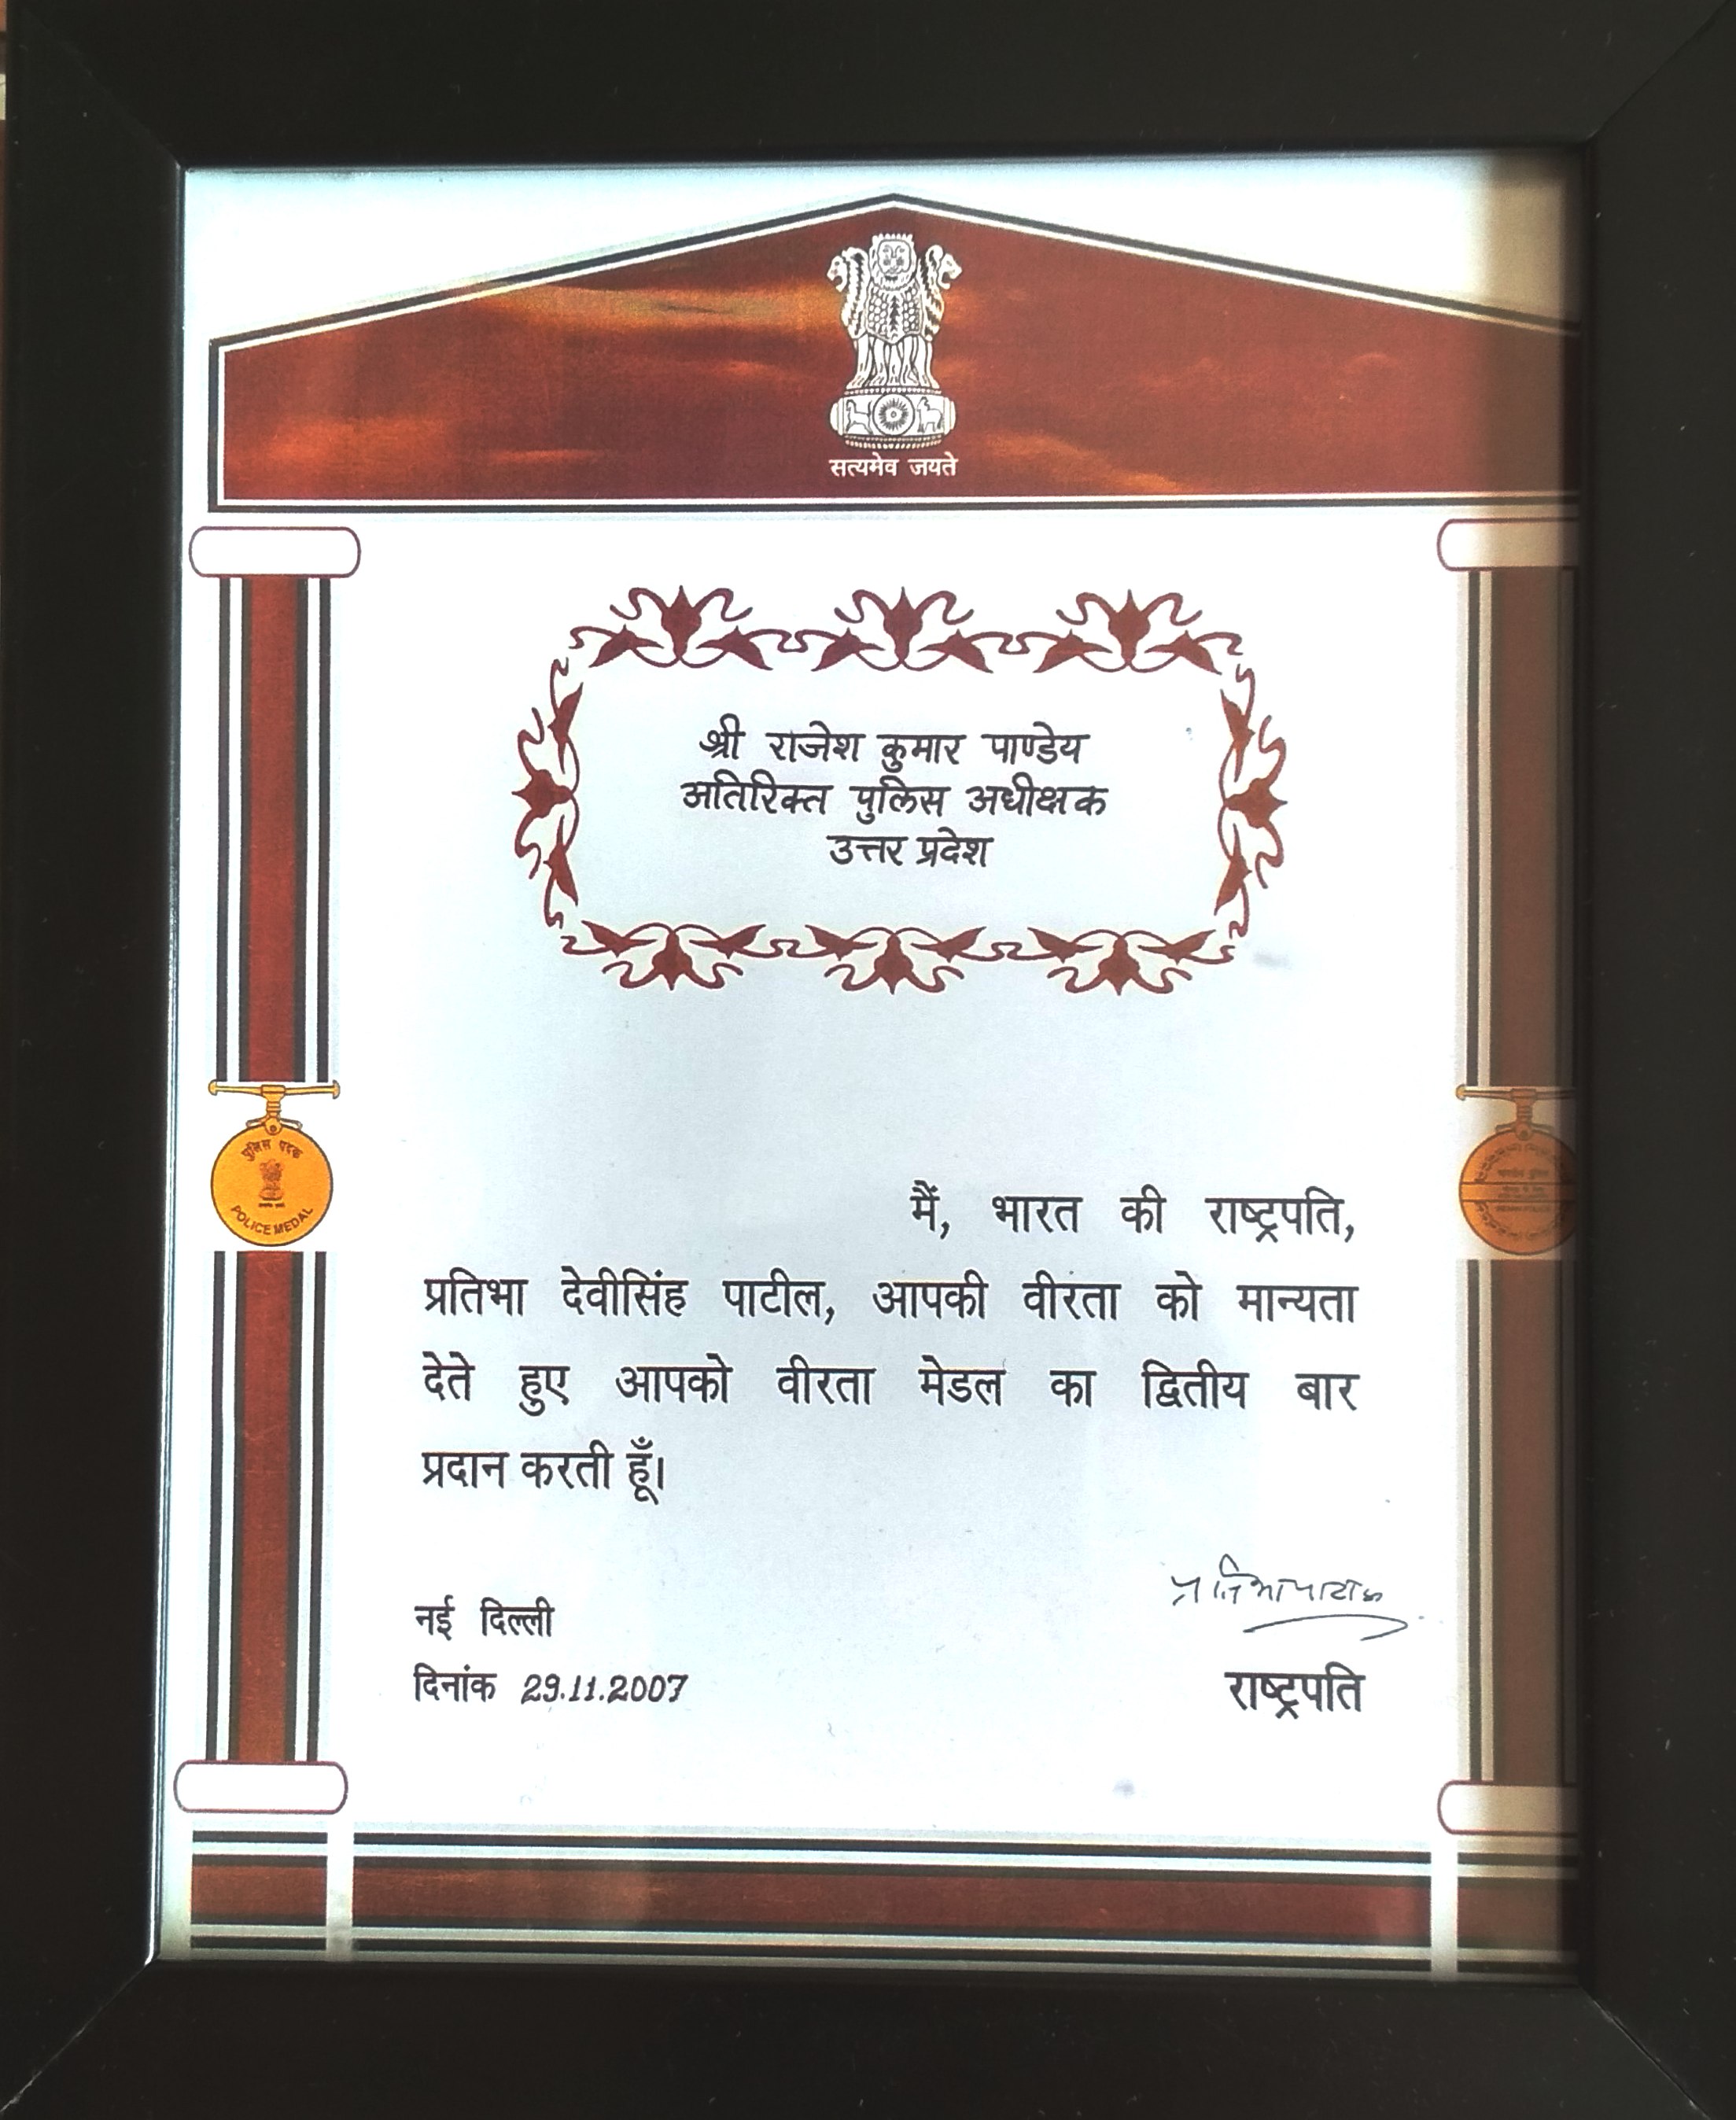 सत्यमेव जयते
श्री राजेश कुमार पाण्डेय
अतिरिक्त पुलिस अधीक्षक
उत्तर प्रदेश
पुलिस पदक
POLICE MEDAL
मैं, भारत की राष्ट्रपति,
प्रतिभा देवीसिंह पाटील, आपकी वीरता को मान्यता
देते हुए आपको वीरता मेडल का द्वितीय बार
प्रदान करती हूँ।
नई दिल्ली
दिनांक 29.11.2007
राष्ट्रपति